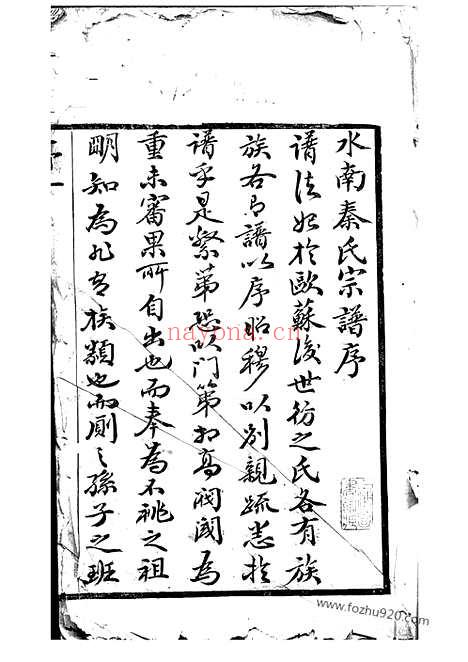 水南秦氏宗譜序
譜法始於歐蘇後世衍之氏各有族
族各有譜以序昭穆以別親疏悉於
譜乎是繫第恐以門第相高閥閱為
重未審果所自出也而奉為不祧之祖
明知為非吾族類也而廁之孫子之班
nayona.cn
www.fozhu920.com